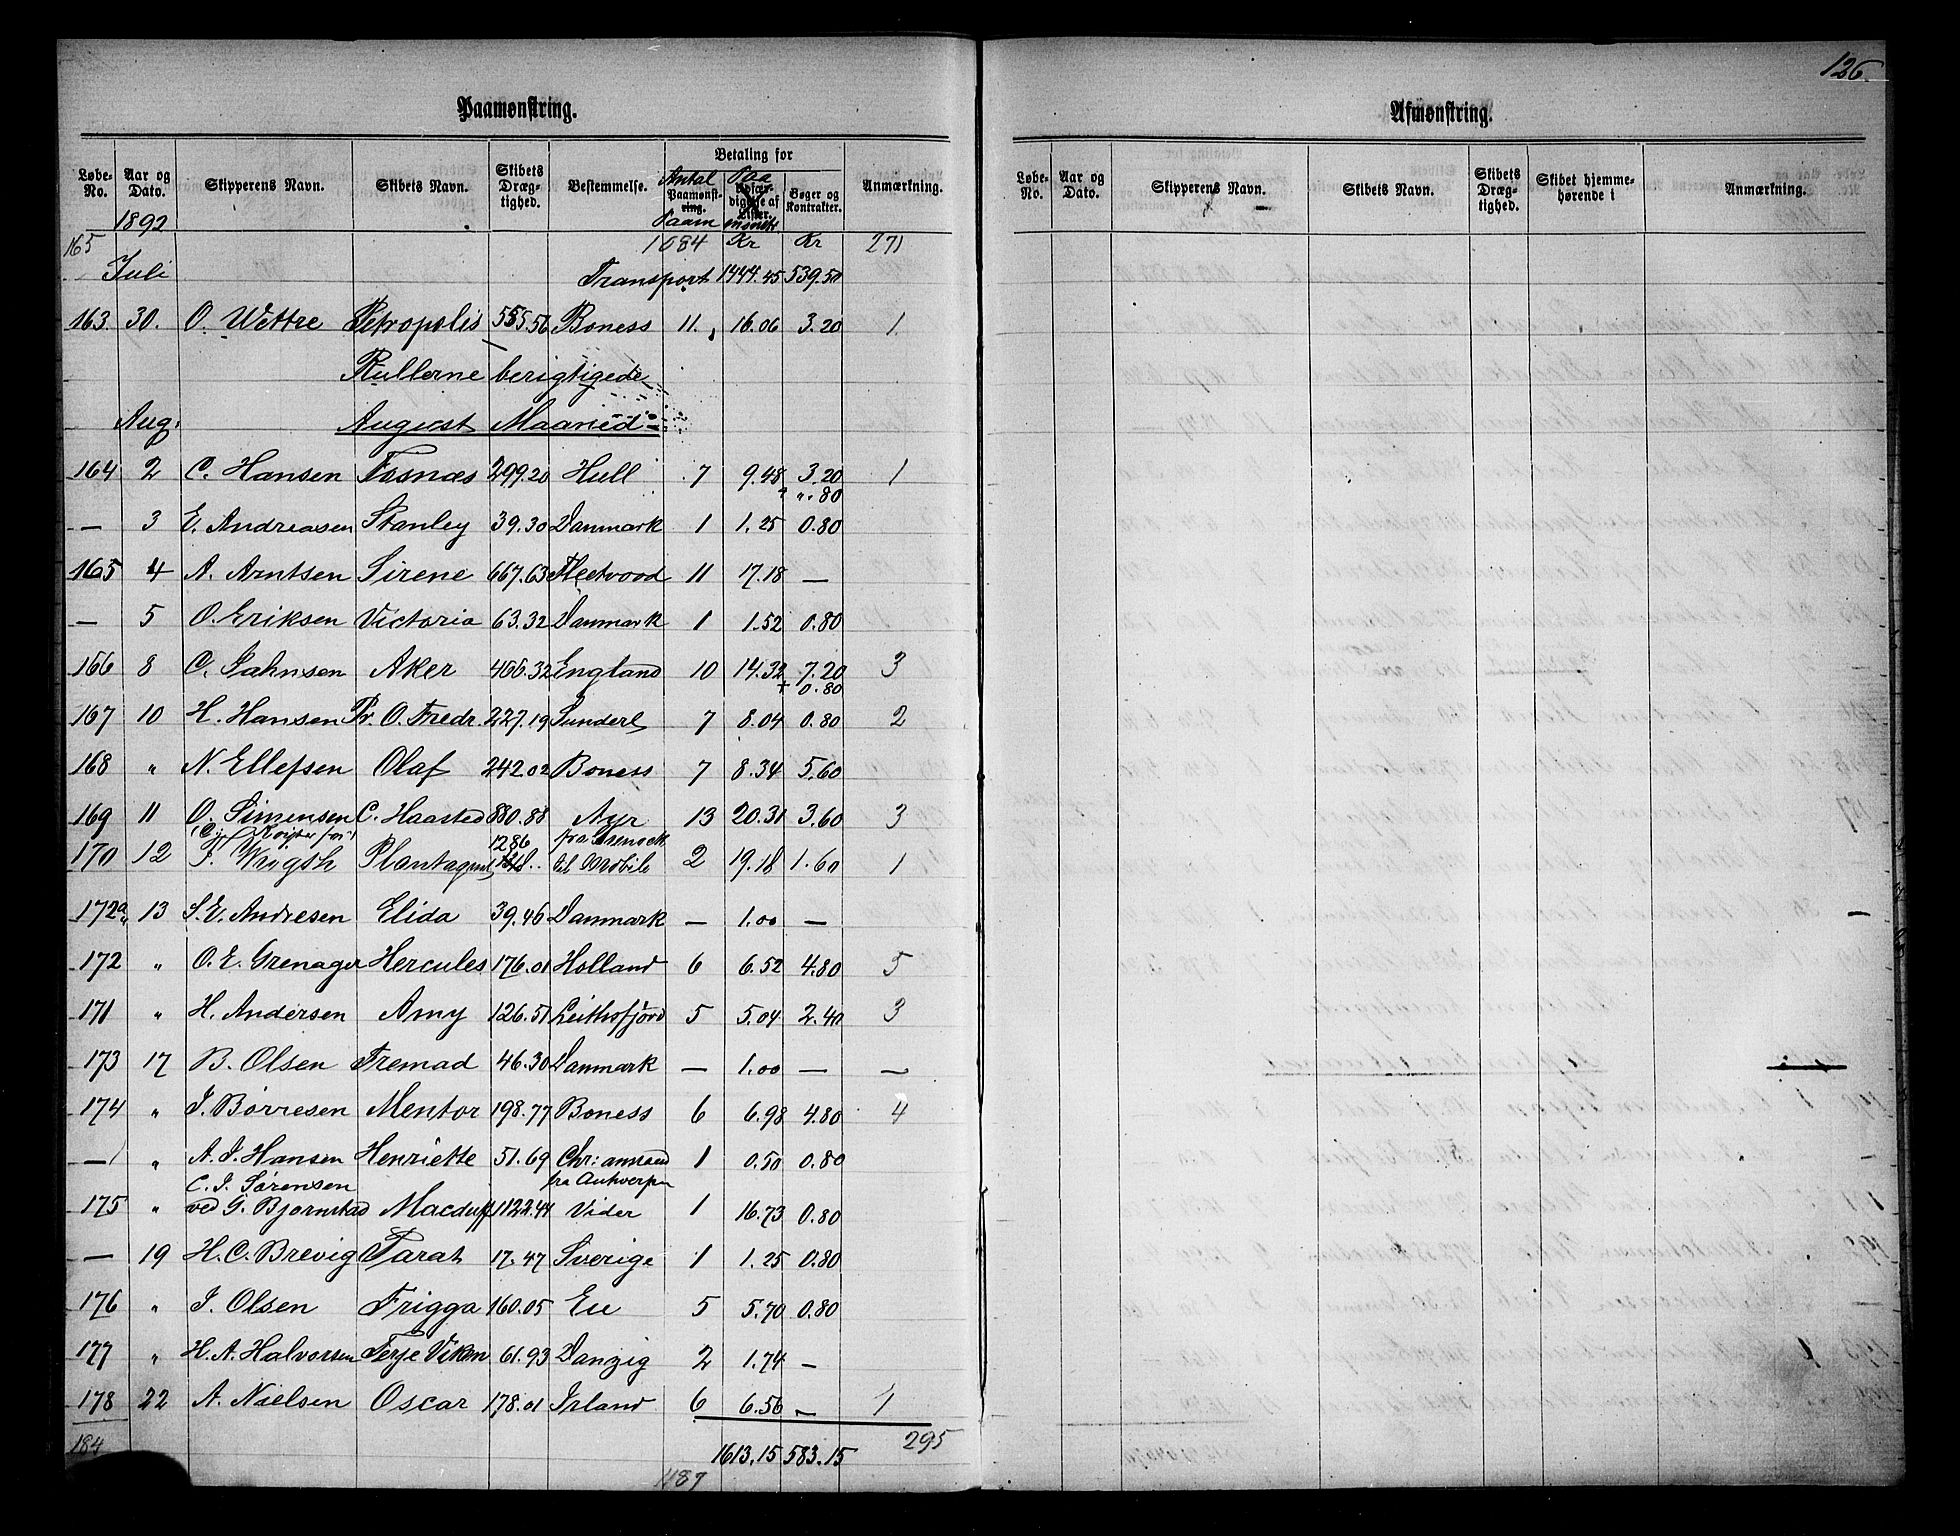 126.
Paamønstring.
Afmønstring.
Løbe-No. Aar og Dato. Skipperens Navn. Skibets Navn. Skibets Dræg-tighed. Bestemmelse. Betaling for Antal Paamønst-ring. Paam Paa Udfær-digelse af Lister. mønstr Bøger og Kontrakter. Anmærkning.
Løbe-No. Aar og Dato. Skipperens Navn. Skibets Navn. Skibets Dræg-tighed. Skibet hjemme-hørende i Anmærkning.
1892
165 1084 Kr Kr 271
Juli Transport 1444.45 539.50
163 30. O. Wettre Petropolis 555.56 Boness 11. 16.06 3.20 1.
Rullerne berigtigede
Aug. August Maaned
164 2 C. Hansen Fosnæs 299.20 Hull 7 9.48 3.20 1
" 80
— 3 E. Andreasen Stanley 39.30 Danmark 1 1.25 0.80
165 4 A. Arntsen Sirene 667.63 Fleetvood 11 17.18 —
— 5 O. Eriksen Victoria 63.32 Danmark 1 1.52 0.80
166 8 C. Jahnsen Aker 466.32 England 10 14.32 7.20 3
+ 0.80
167 10 H. Hansen Pr. O. Fredr. 227.19 Sunderl 7 8.04 0.80 2
168 " N. Ellefsen Olaf 242.02 Boness 7 8.34 5.60
169 11 O. Simensen C. Haasted 880.88 Ayr 13 20.31 3.60 3
1286 fra Grenock
170 12 Plantagnet til Mobile 2 19.18 1.60 1
172a 13 S. E. Andresen Elida 39.46 Danmark — 1.00 —
172 " O. E. Grenager Hercules 176.01 Holland 6 6.52 4.80 5
171 " H. Andersen Amy 126.51 Leithsfjörd 5 5.04 2.40 3
173 17 B. Olsen Fremad 46.30 Danmark — 1.00 — —
174 " J. Børresen Mentor 198.77 Boness 6 6.98 4.80 4
— " A. J. Hansen Henriette 51.69 Chr: anssand 1 0.50 0.80
C. J. Sørensen fra Antwerpen
175 " ved G. Bjørnstad Macduff 1122.44 Vider 1 16.73 0.80
— 19 H. C. Brevig Farat 17.47 Sverige 1 1.25 0.80
176 " J. Olsen Frigga 160.05 Eu 5 5.70 0.80
177 " H. A. Halvorsen Terje Viken 61.93 Danzig 2 1.74 —
178 22 A. Nielsen Oscar 178.01 Irland 6 6.56 — 1
184 1613.15 583.15 295
1187